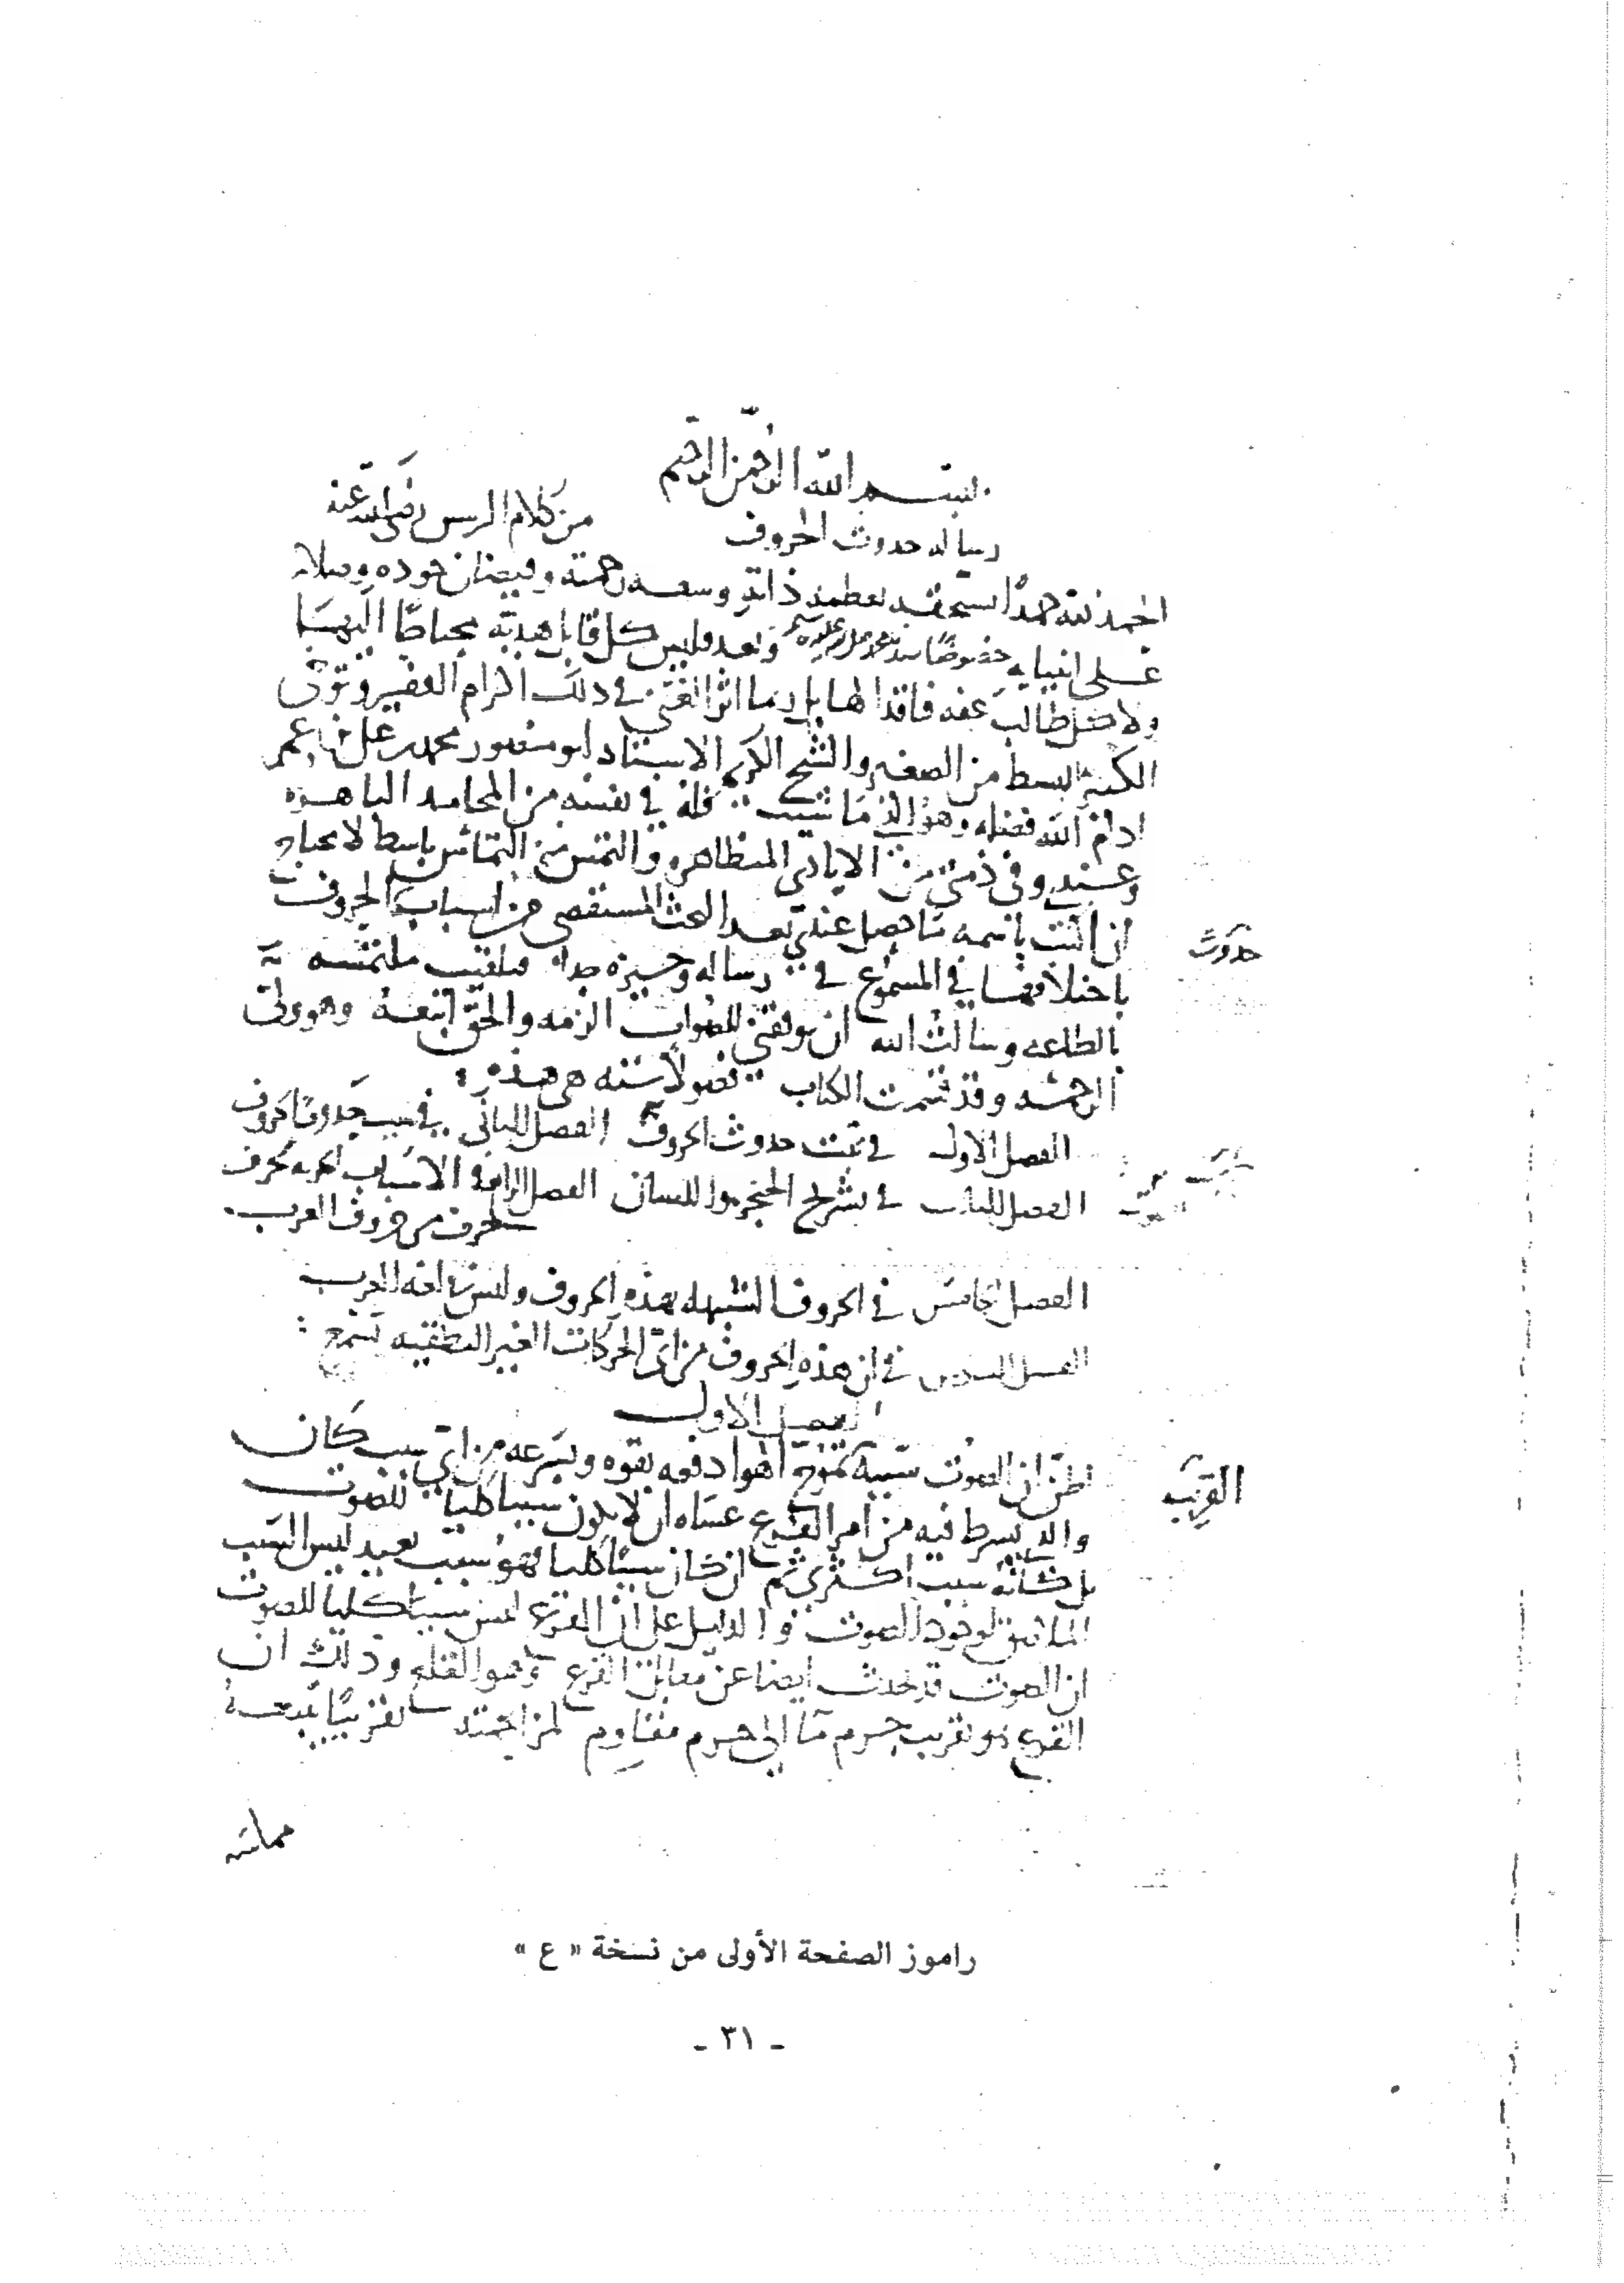 بسم الله الرحمن الرحيم
رساله حدوث الحروف
من كلام الرييس رضى الله عنه
الحمد لله حمدًا يستحقه بعظمة ذاته وسعه رحمته وفيضان جوده وصلاته
على انبيايه خصوصًا سيدنا محمد وبعد فليس كل قابل هديه محتاجًا اليها
ولا كل طالب تحفه فاقدا لها بل ربما اثر الغنى فى ذلك اكرام الفقير وتوخى
الكبير البسط من الصغير والشيخ الكريم الاستاد ابو منصور محمد بن على بن عمر
ادام الله فضله وهو الذى ما شيت فله فى نفسه من المحامد الباهره
وعندى وفى ذمتى من الايادى المتظاهره والتمس منى التماس باسط لا محتاج
ان اثبت باسمه ما حصل عندى بعد البحث المستقصى من اسباب الحروف
حدوث
باختلافها فى المسموع فى رساله وجيزه جدا فتلقيت ملتمسه
بالطاعه وسالت الله ان يوفقنى للصواب الزمه والحق اتبعه وهو ولى
الرحمه وقد قسمت الكتاب فصولا سته هى هذه
الفصل الاول فى سبب حدوث الحروف الفصل الثانى فى سبب حدوث الحروف
سبب
الصوت
الفصل الثالث فى تشريح الحنجره واللسان الفصل الرابع فى الاسباب الجزييه لحرف
حرف من حروف العرب
الفصل الخامس فى الحروف الشبيهه بهذه الحروف وليس فى لغه العرب
الفصل السادس فى ان هذه الحروف من اى الحركات الغير النطقيه تسمع
الفصل الاول
اظن ان الصوت سببه تموج الهوا دفعه بقوه وبسرعه من اى سبب كان
القريب
والذى يشترط فيه من امر القرع عساه ان لا يكون سببا كليا للصوت
بل كانه سبب اكثرى ثم ان كان سببًا كليا فهو سبب بعيد ليس السبب
الملاصق لوجود الصوت والدليل على ان القرع ليس سببًا كليا للصوت
ان الصوت قد يحدث ايضا عن مقابل القرع وهو القلع وذلك ان
القرع هو تقريب جرم ما الى جرم مقاوم لمزاحمته تقريبًا يتبعه
مماسه
راموز الصفحة الأولى من نسخة « ع »
- ٣١ -